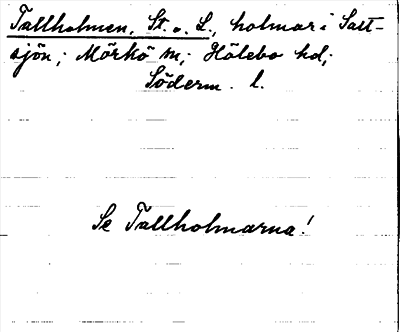 Tallholmen, St. o. L., holmar i Salt-
sjön; Mörkö sn; Hölebo hd;
Söderm. l.
Se Tallholmarna!